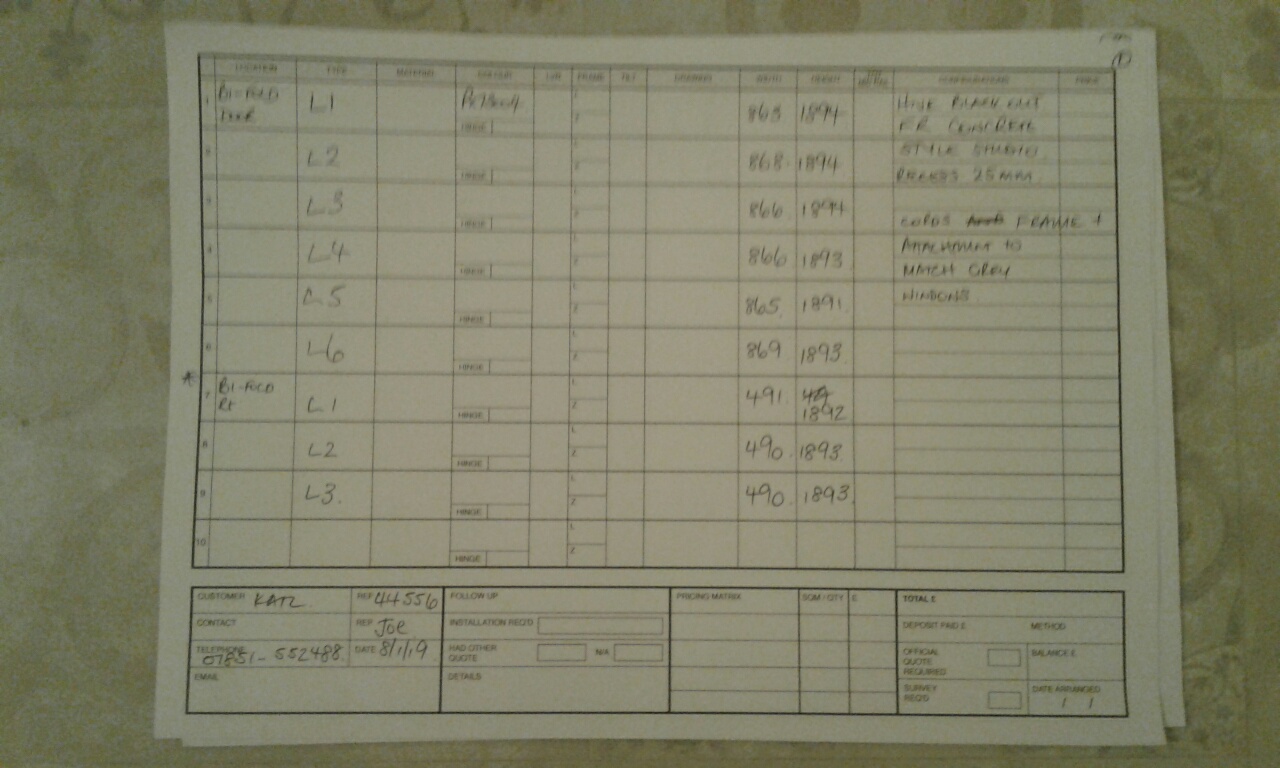 1
LOCATION TYPE MATERIAL COLOUR L/R FRAME TILT DRAWING WIDTH HEIGHT CONFIGURATIONS PRICE
1 BI-FOLD L1 863 1894 BLACK OUT
DOOR HINGE FR CONCRETE
2 L2 868 1894 STYLE STUDIO
HINGE RECESS 25MM
3 L3 866 1894
HINGE CORDS FRAME +
4 L4 866 1893 ATTACHMENT TO
HINGE MATCH GREY
5 L5 865 1891 WINDOWS
HINGE
6 L6 869 1893
HINGE
7 BI-FOLD L1 491 1892
Rt HINGE
8 L2 490 1893
HINGE
9 L3 490 1893
HINGE
10 HINGE
CUSTOMER KATZ REF 44556 FOLLOW UP PRICING MATRIX SQM / QTY £ TOTAL £
CONTACT REP Joe INSTALLATION REQ'D DEPOSIT PAID £ METHOD
TELEPHONE 07851-552488 DATE 8/1/19 HAD OTHER QUOTE N/A OFFICIAL QUOTE REQUIRED BALANCE £
EMAIL DETAILS SURVEY REQ'D DATE ARRANGED / /